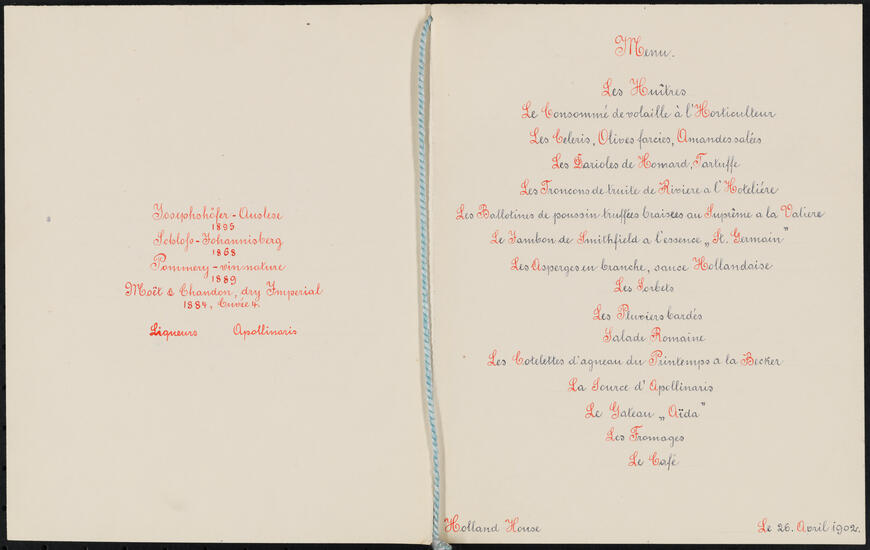 Josephshöfer-Auslese
1895
Schloß-Johannisberg
1868
Pommery-vin nature
1889
Moët & Chandon, dry Imperial
1884, Cuvée 4.
Liqueurs Apollinaris
Menu.
Les Huîtres
Le Consommé de volaille à l'Horticulteur
Les Celeris, Olives farcies, Amandes salées
Les Darioles de Homard, Tartuffe
Les Troncons de truite de Riviere a l'Hoteliére
Les Ballotines de poussin truffées braisées au Suprême a la Valiere
Le Jambon de Smithfield a l'essence „St. Germain"
Les Asperges en branche, sauce Hollandaise
Les Sorbets
Les Pluviers bardés
Salade Romaine
Les Cotelettes d'agneau du Printemps a la Becker
La Source d'Apollinaris
Le Gateau „Aïda"
Les Fromages
Le Café
Holland House
Le 26. Avril 1902.